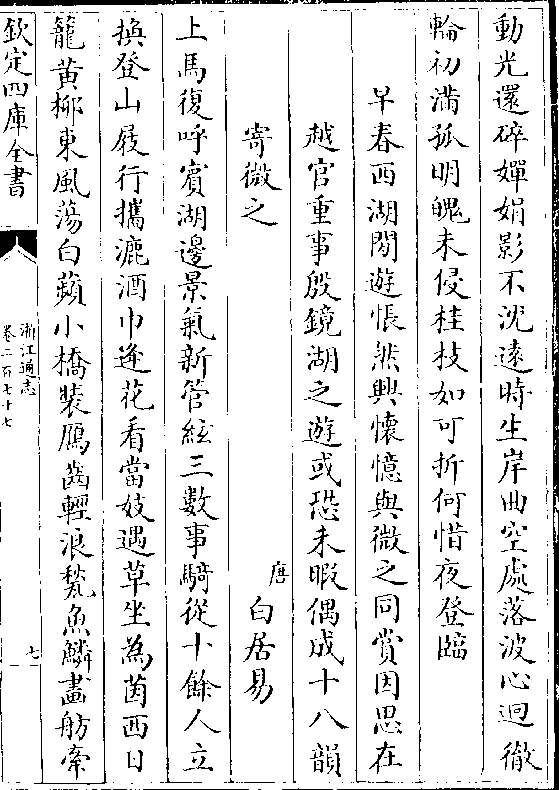 動光還碎嬋娟影不沈遠時生岸曲空處落波心迥徹
輪初滿孤明魄未侵桂枝如可折何惜夜登臨
早春西湖閒遊悵然興懷憶與微之同賞因思在
越官重事殷鏡湖之遊或恐未暇偶成十八韻
寄微之
唐 白居易
上馬復呼賓湖邊景氣新管絃三數事騎從十餘人立
換登山屐行攜漉酒巾逢花看當妓遇草坐為茵西日
籠黃柳東風蕩白蘋小橋裝鴈齒輕浪甃魚鱗畫舫牽
欽定四庫全書
浙江通志
卷二百七十七
七